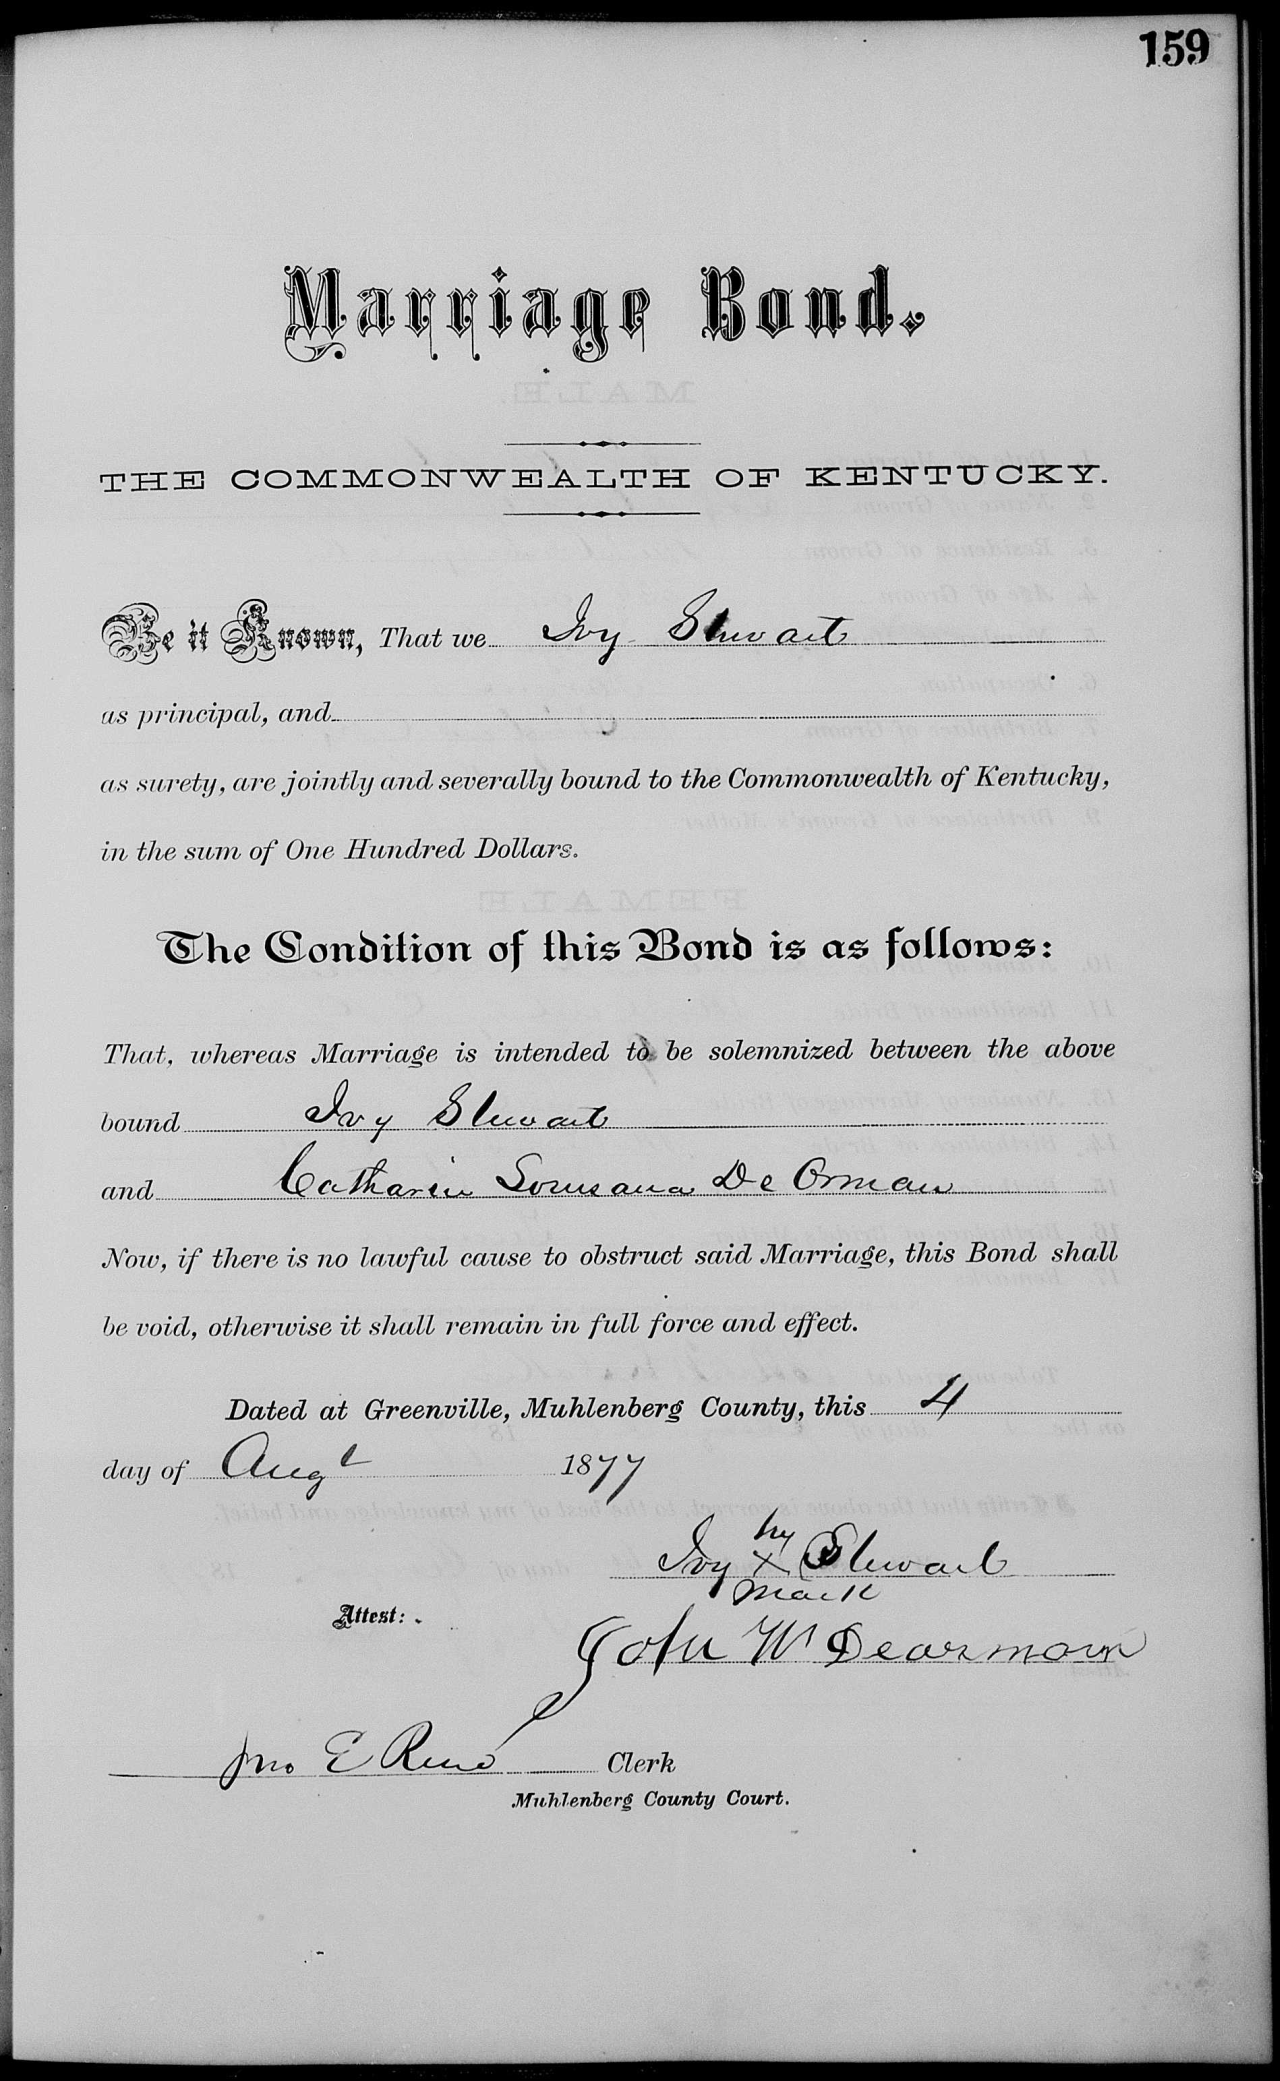 159
Marriage Bond.
THE COMMONWEALTH OF KENTUCKY.
Be it Known, That we Ivy Stewart
as principal, and
as surety, are jointly and severally bound to the Commonwealth of Kentucky,
in the sum of One Hundred Dollars.
The Condition of this Bond is as follows:
That, whereas Marriage is intended to be solemnized between the above
bound Ivy Stewart
and Catharin Lousana De Orman
Now, if there is no lawful cause to obstruct said Marriage, this Bond shall
be void, otherwise it shall remain in full force and effect.
Dated at Greenville, Muhlenberg County, this 4
day of Augt 1877
his
Ivy X Stewart
mark
Attest:
John W Dearmown
Jno E Reno Clerk
Muhlenberg County Court.